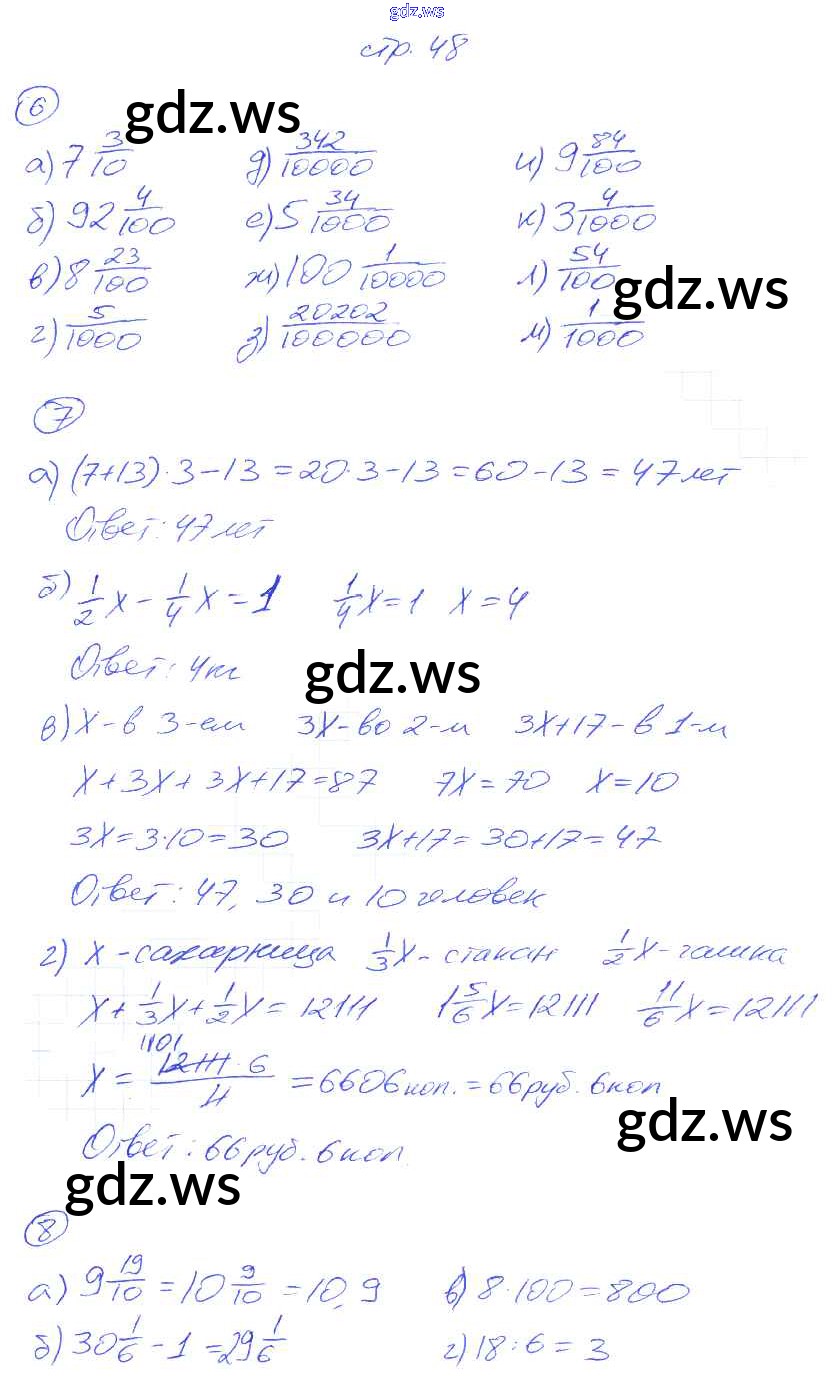 gdz.ws
стр. 48
6
gdz.ws
а) 7 3/10 д) 342/10000 и) 9 84/100
б) 92 4/100 е) 5 34/1000 к) 3 4/1000
в) 8 23/100 ж) 100 1/10000 л) 54/100
gdz.ws
г) 5/1000 з) 20202/100000 м) 1/1000
7
а) (7+13)·3-13=20·3-13=60-13=47 лет
Ответ: 47 лет
б) 1/2 x - 1/4 x = 1 1/4 x = 1 x = 4
Ответ: 4 кг
gdz.ws
в) x - в 3-ем 3x - во 2-м 3x+17 - в 1-м
x+3x+3x+17=87 7x=70 x=10
3x=3·10=30 3x+17=30+17=47
Ответ: 47, 30 и 10 человек
г) x - сахарница 1/3 x - стакан 1/2 x - чашка
x + 1/3 x + 1/2 x = 12111 1 5/6 x = 12111 11/6 x = 12111
1101
x = 12111·6/11 = 6606 коп. = 66 руб. 6 коп
gdz.ws
Ответ: 66 руб. 6 коп.
gdz.ws
8
а) 9 19/10 = 10 9/10 = 10,9 в) 8·100=800
б) 30 1/6 - 1 = 29 1/6 г) 18:6=3